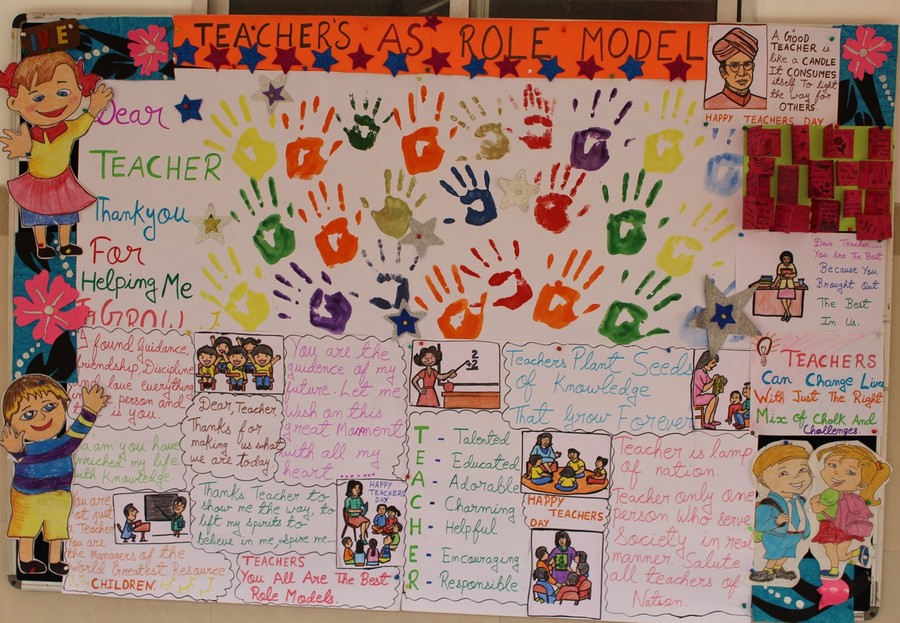 TEACHER'S AS ROLE MODEL
A GOOD
TEACHER is
like a CANDLE
It CONSUMES
itself To light
the way for
OTHERS
HAPPY TEACHERS DAY
Dear
TEACHER
Thankyou
For
Helping Me
GROW
Dear Teacher.....
You Are The Best
Because You
Brought Out
The Best
In Us.
TEACHERS
Can Change Lives
With Just The Right
Mix of Chalk And
Challenges.
A found guidance,
friendship, Discipline
and love everything
in person and
is you.
Dear, Teacher,
Thanks for
making us what
we are today
You are the
guidence of my
future. Let me
wish on this
great Mament
with all my
heart ......
2
-2
Teachers Plant Seeds
of Knowledge
That grow Forever
am you have
enriched my life
with Knowledge.
You are
not just
a Teacher
You are
the Managers of the
World Greatest Resource
CHILDREN.
Thanks Teacher to
show me the way, to
lift my spirits to
believe in me, inspire me...
HAPPY
TEACHERS
DAY
TEACHERS
You All Are The Best
Role Models.
T - Talented
E - Educated
A - Adorable
C - Charming
H - Helpful
E - Encouraging
R - Responsible
HAPPY
TEACHERS
DAY
Teacher is lamp
of nation.
Teacher only one
person who serve
Society in real
manner. Salute
all teachers of
Nation.